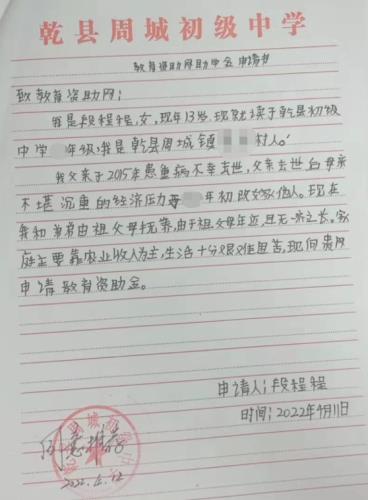 乾县周城初级中学
教育资助网助学金申请书
致教育资助网:
我是段程程,女,现年13岁,现就读于乾县初级
中学 年级,我是乾县周城镇 村人。
我父亲于2015年患重病不幸去世,父亲去世后母亲
不堪沉重的经济压力 年初改嫁他人。现在
我和弟弟由祖父母抚养,由于祖父母年迈,且无一技之长。家
庭主要靠农业收入为主,生活十分艰难困苦,现向贵网
申请教育资助金。
申请人:段程程
时间:2022年4月11日
2022.4.12